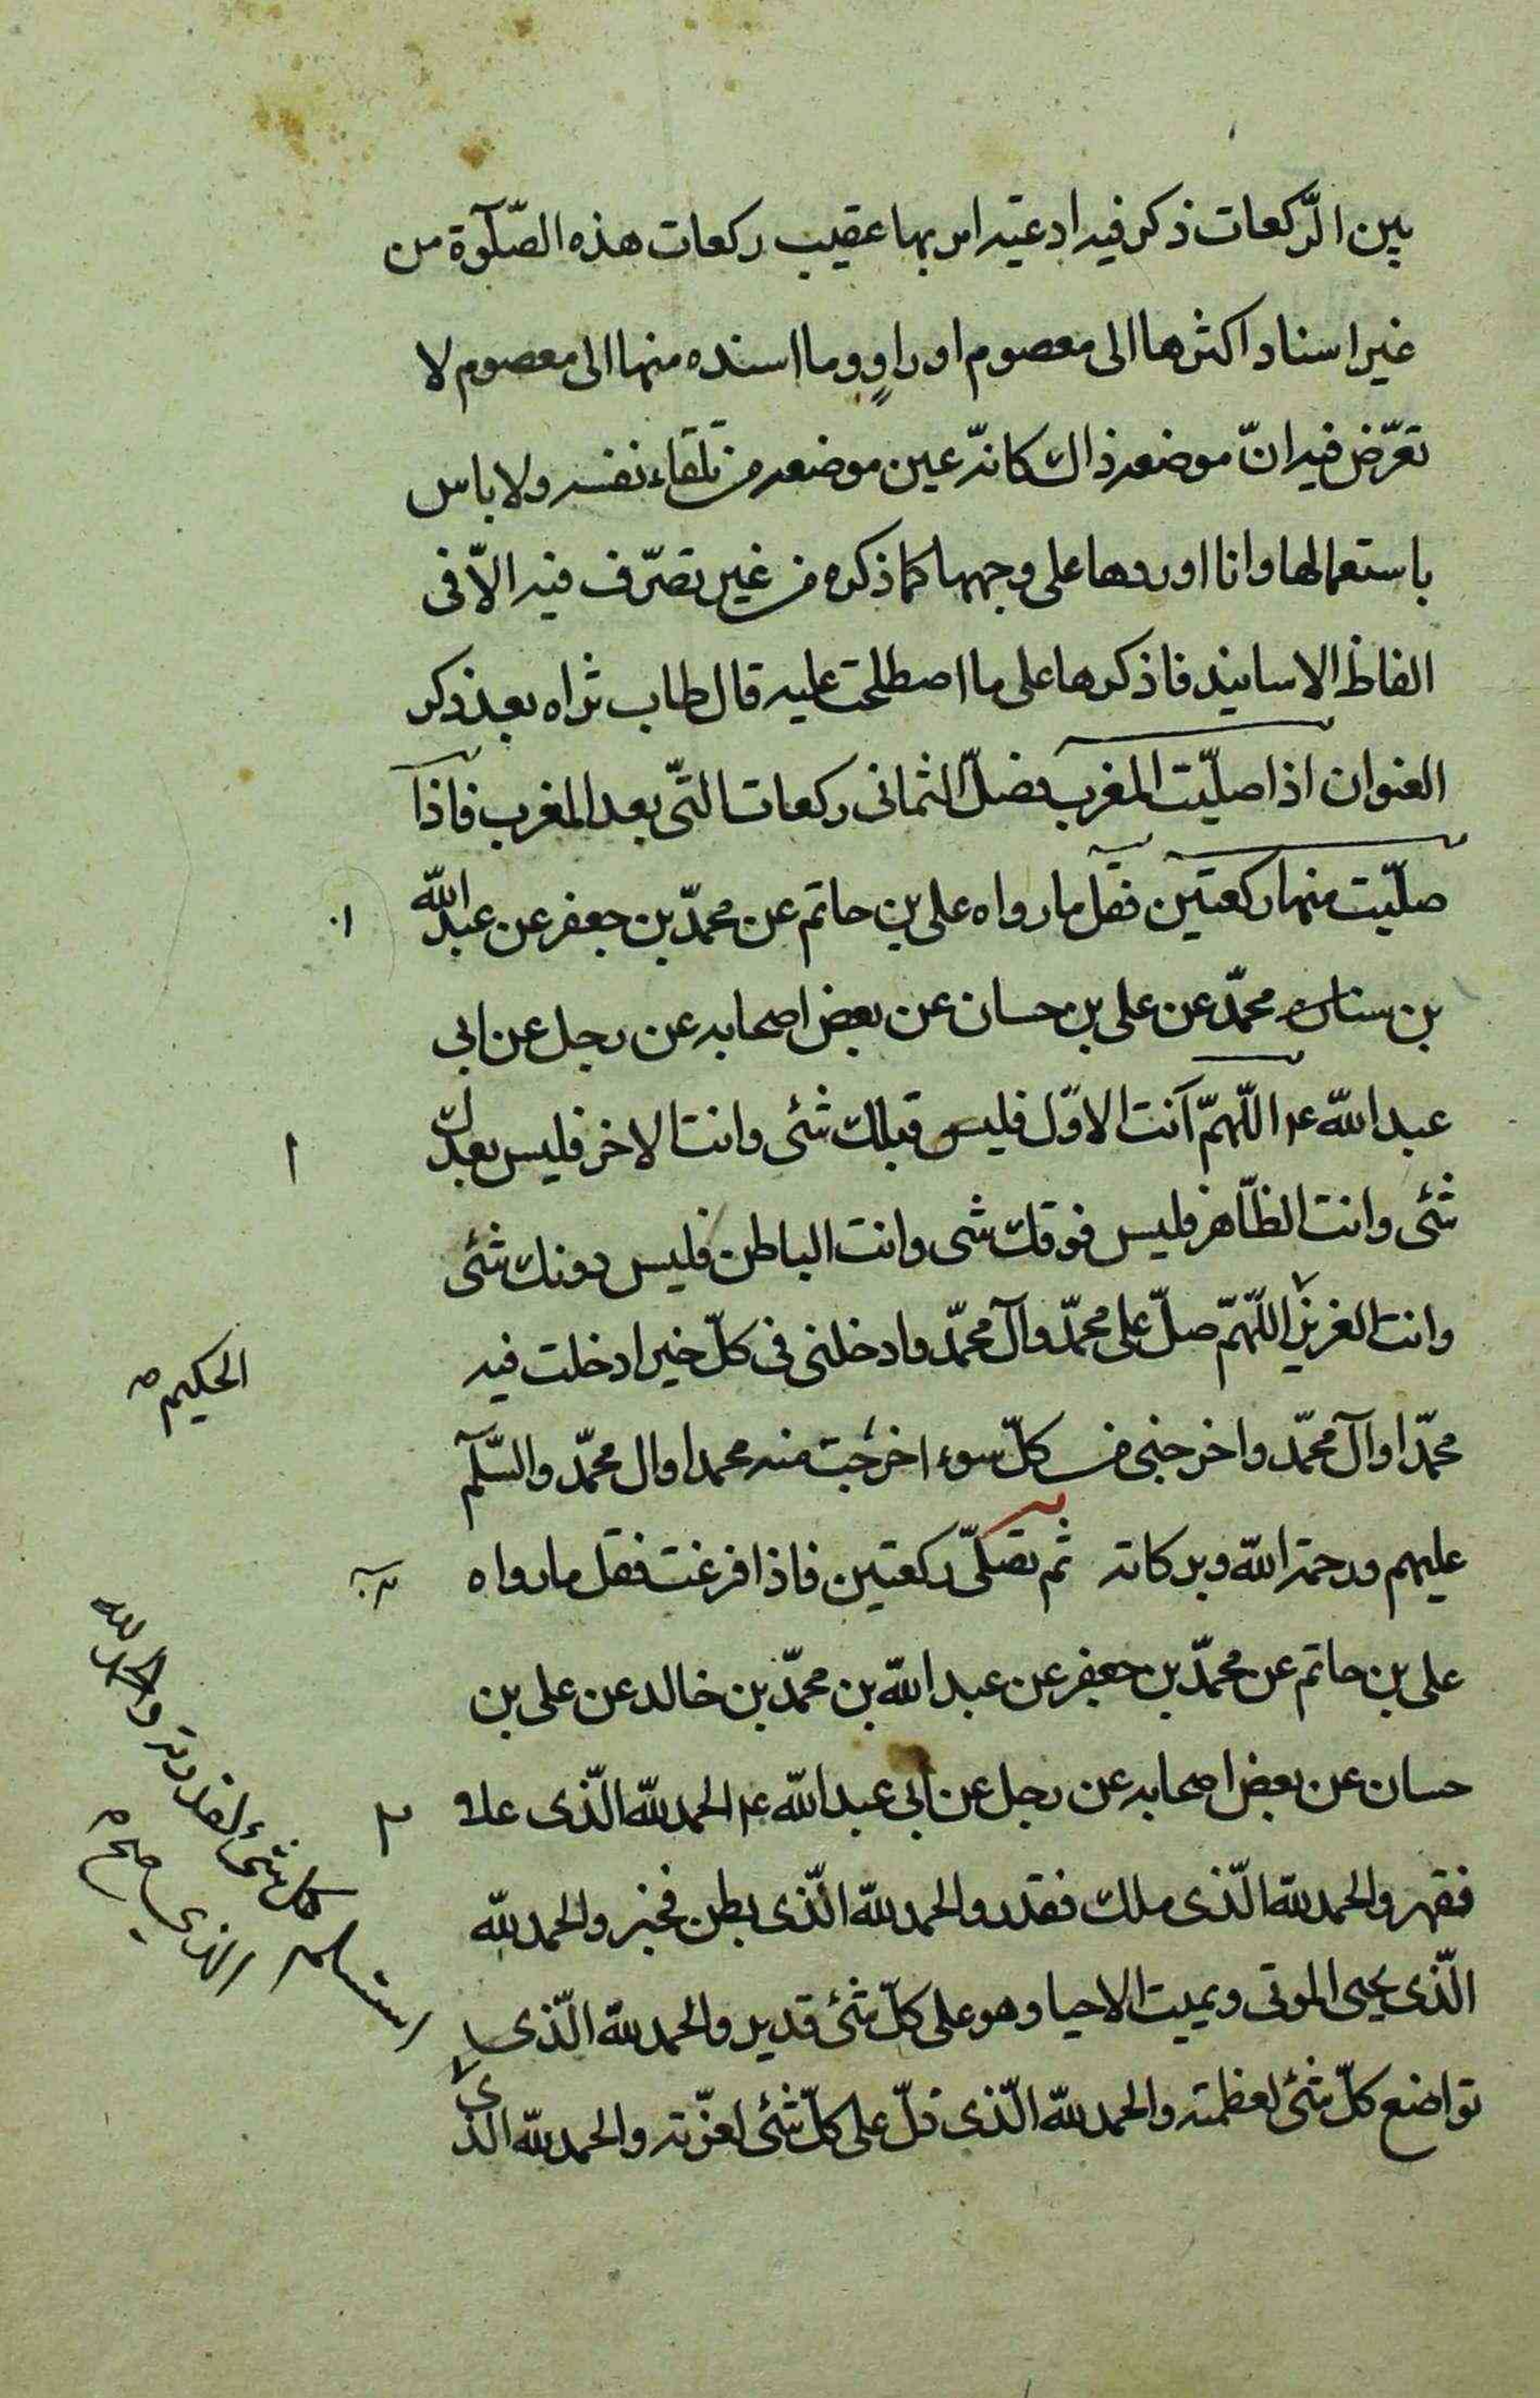 بين الرّكعات ذكر فيه ادعيته امر بها عقيب ركعات هذه الصّلوة من
غير اسناد اكثرها الى معصوم او راوٍ وما اسنده منها الى معصوم لا
تعرّض فيه انّ موضعه ذاك كانّه عين موضعه من تلقاء نفسه ولا باس
باستعمالها وانا اوردها على وجهها كما ذكره من غير تصرّف فيه الّا فى
الفاظ الاسانيد فاذكرها على ما اصطلحت عليه قال طاب ثراه بعد ذكر
العنوان اذا صلّيت المغرب فصلّ الثمانى ركعات التّى بعد المغرب فاذا
صلّيت منها ركعتين فقل ما رواه على بن حاتم عن محمّد بن جعفر عن عبد الله
بن محمّد عن على بن حسان عن بعض اصحابه عن رجل عن ابى
عبد الله ع اللّهمّ انت الاوّل فليس قبلك شئ وانت الاخر فليس بعدك
شئ وانت الظّاهر فليس فوقك شى وانت الباطن فليس دونك شئى
وانت العزيز اللّهمّ صلّ على محمّد وآل محمّد وادخلنى فى كلّ خير ادخلت فيه
الحكيم
محمّدا وآل محمّد واخرجنى من كلّ سوء اخرجت منه محمدا وال محمّد والسّلم
عليهم ورحمة الله وبركاته ثم تصلّى ركعتين فاذا فرغت فقل ما رواه
على بن حاتم عن محمّد بن جعفر عن عبد الله بن محمّد بن خالد عن على بن
حسان عن بعض اصحابه عن رجل عن ابى عبد الله ع الحمد لله الّذى علا
فقهر والحمد لله الّذى ملك فقدر والحمد لله الّذى بطن فخبر والحمد لله
الّذى يحيى الموتى ويميت الاحيا وهو على كلّ شئ قدير والحمد لله الّذى
تواضع كلّ شئ لعظمته والحمد لله الّذى ذلّ على كلّ شئ لعزّته والحمد لله الذى
استسلم كل شئ لقدرته والحمد لله
الذى صح